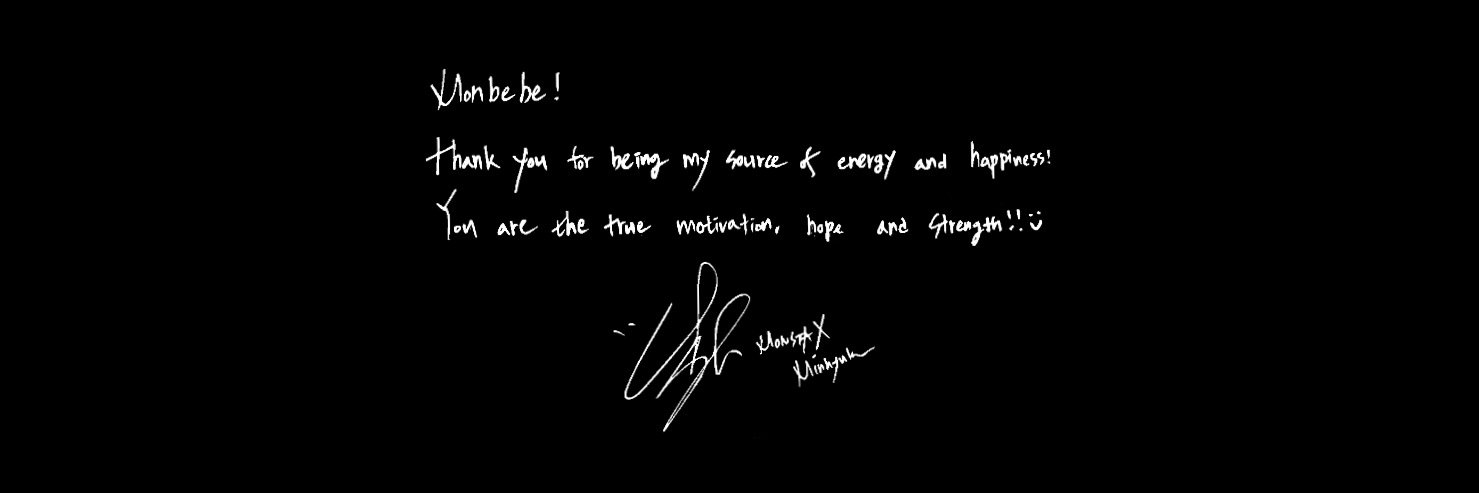 Monbebe!
Thank you for being my source of energy and happiness!
You are the true motivation, hope and strength!! :)
MONSTA X
Minhyuk